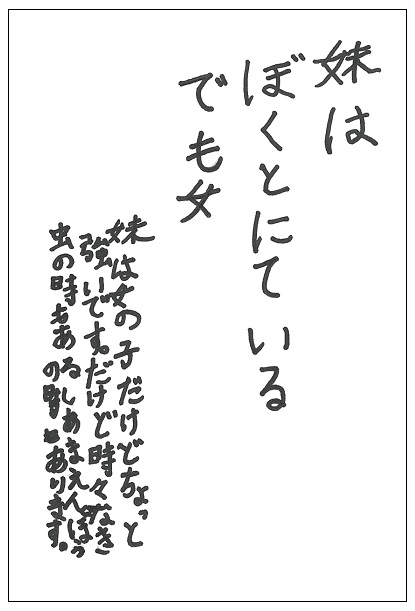 妹は
ぼくとにている
でも女
妹は女の子だけどちょっと
強いです。だけど時々なき
虫の時もあるしあまえんぼう
の時もあります。